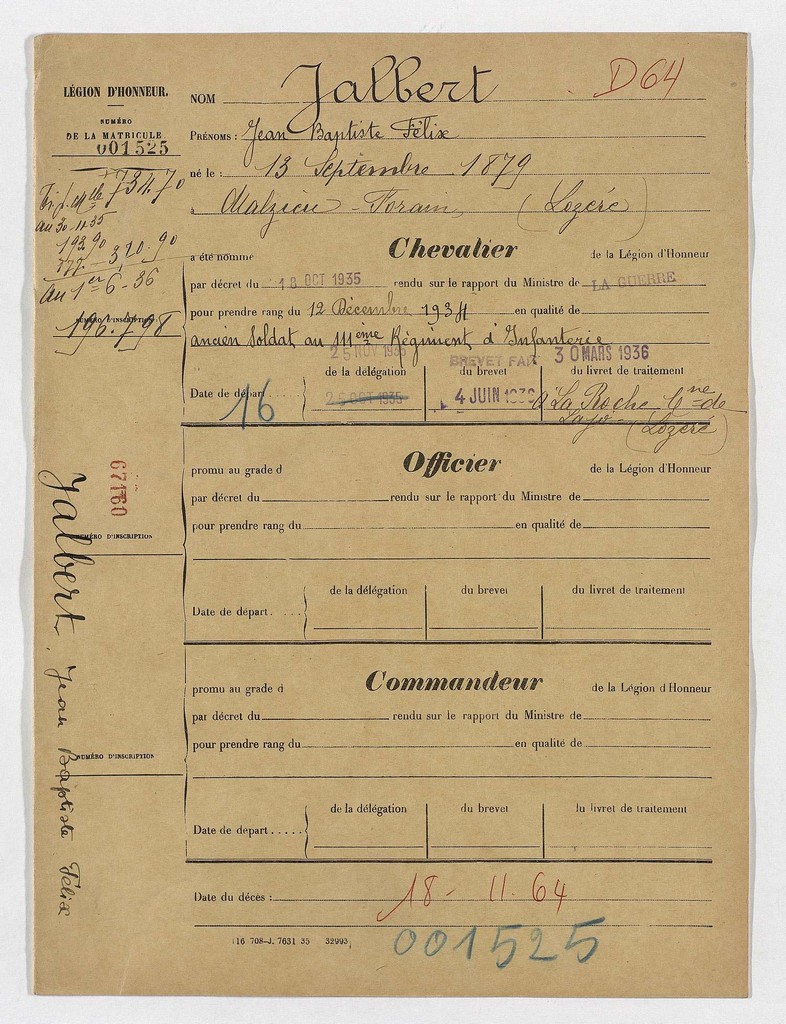 LÉGION D'HONNEUR.
NUMÉRO
DE LA MATRICULE
001525
73470
au 30.11.35
192.90
177. — 320.90
au 1er 6-36
NUMÉRO D'INSCRIPTION
196.798
67160
NUMÉRO D'INSCRIPTION
Jalbert, Jean Baptiste Félix
NUMÉRO D'INSCRIPTION
D64
NOM Jalbert
PRÉNOMS : Jean Baptiste Félix
né le : 13 Septembre 1879
à Malzieu-Forain, (Lozère)
a été nommé Chevalier de la Légion d'Honneur
par décret du 18 OCT 1935 rendu sur le rapport du Ministre de LA GUERRE
pour prendre rang du 12 Décembre 1934 en qualité de
ancien Soldat au 111ème Régiment d'Infanterie
25 NOV 1935 BREVET FAIT 30 MARS 1936
de la délégation du brevet du livret de traitement
Date de départ 16 26 OCT 1935 4 JUIN 1936 à La Roche Cne de
Lajo - (Lozère)
promu au grade d Officier de la Légion d'Honneur
par décret du rendu sur le rapport du Ministre de
pour prendre rang du en qualité de
de la délégation du brevet du livret de traitement
Date de départ. . . .
promu au grade d Commandeur de la Légion d'Honneur
par décret du rendu sur le rapport du Ministre de
pour prendre rang du en qualité de
de la délégation du brevet du livret de traitement
Date de départ . . . . .
Date du décès : 18-11.64
16 708-J. 7631 35 32993
001525